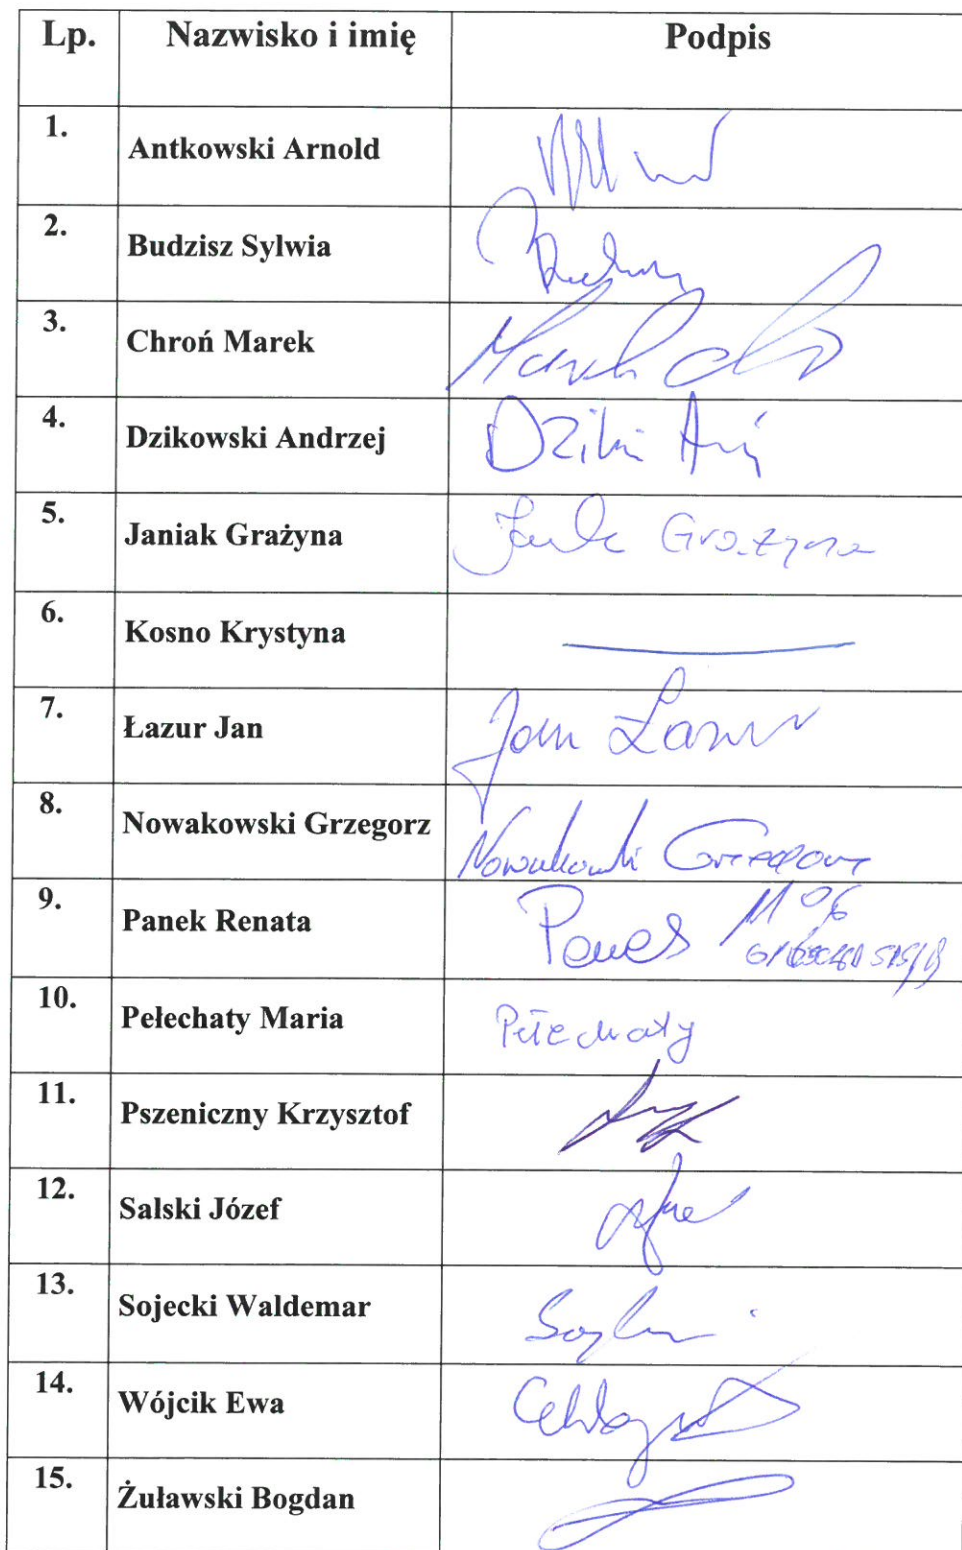 Lp. Nazwisko i imię Podpis
1. Antkowski Arnold
2. Budzisz Sylwia
3. Chroń Marek Marek
4. Dzikowski Andrzej
5. Janiak Grażyna Grażyna
6. Kosno Krystyna
7. Łazur Jan Jan Łazur
8. Nowakowski Grzegorz Nowakowski Grzegorz
9. Panek Renata
10. Pełechaty Maria Pełechaty
11. Pszeniczny Krzysztof
12. Salski Józef
13. Sojecki Waldemar
14. Wójcik Ewa
15. Żuławski Bogdan